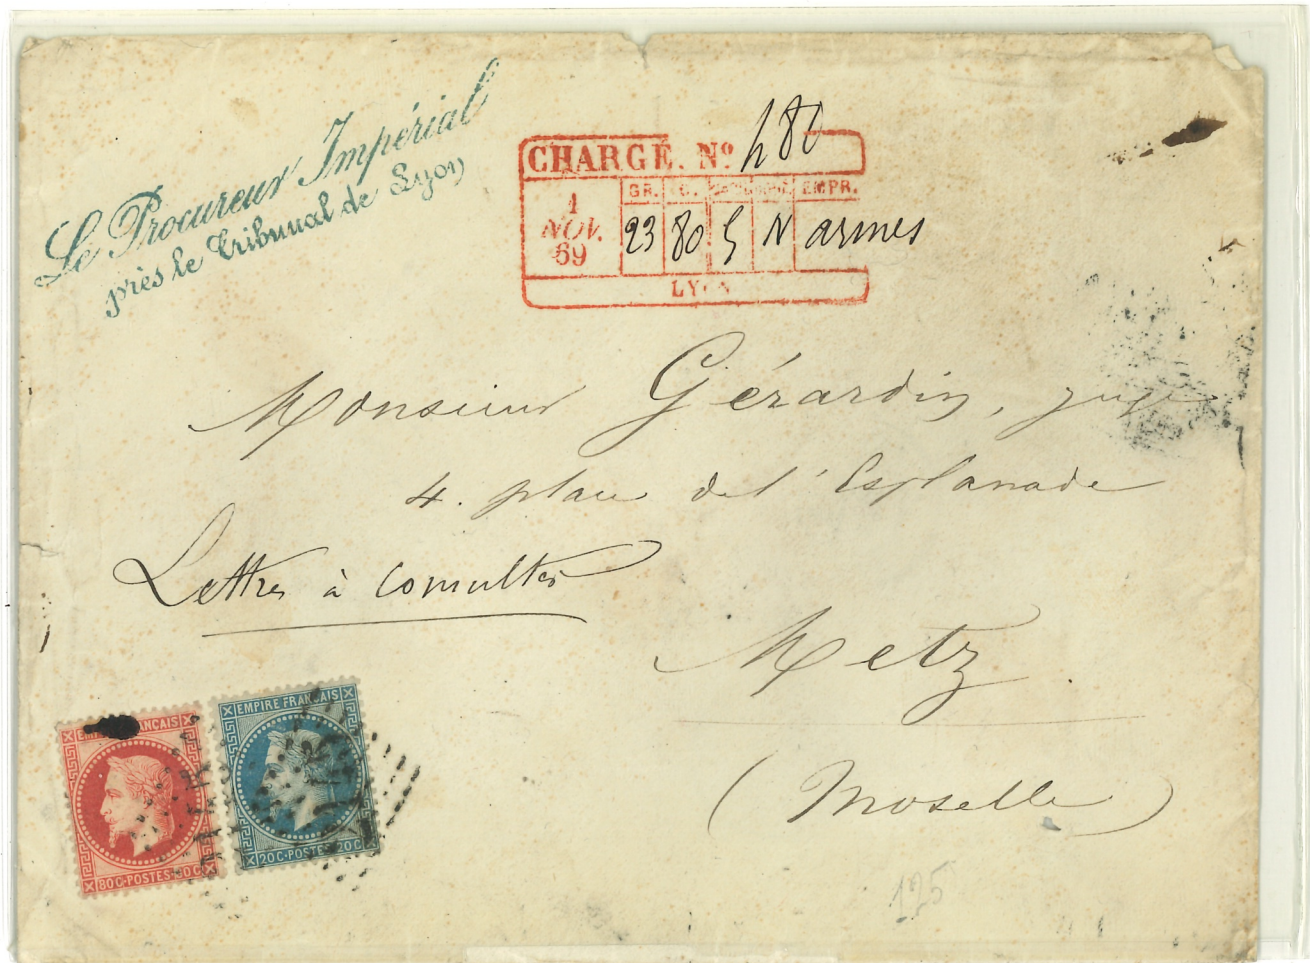 Le Procureur Impérial
près le Tribunal de Lyon
CHARGÉ. Nº 480
GR. C. EMPR.
1
NOV.
69
23 80 5 N armes
LYON
Monsieur Gérardin, juge
4. place de l'Esplanade
Lettres à consulter
Metz
(Moselle)
EMPIRE FRANCAIS
80C·POSTES·80C
EMPIRE FRANCAIS
20C·POSTES·20C
125